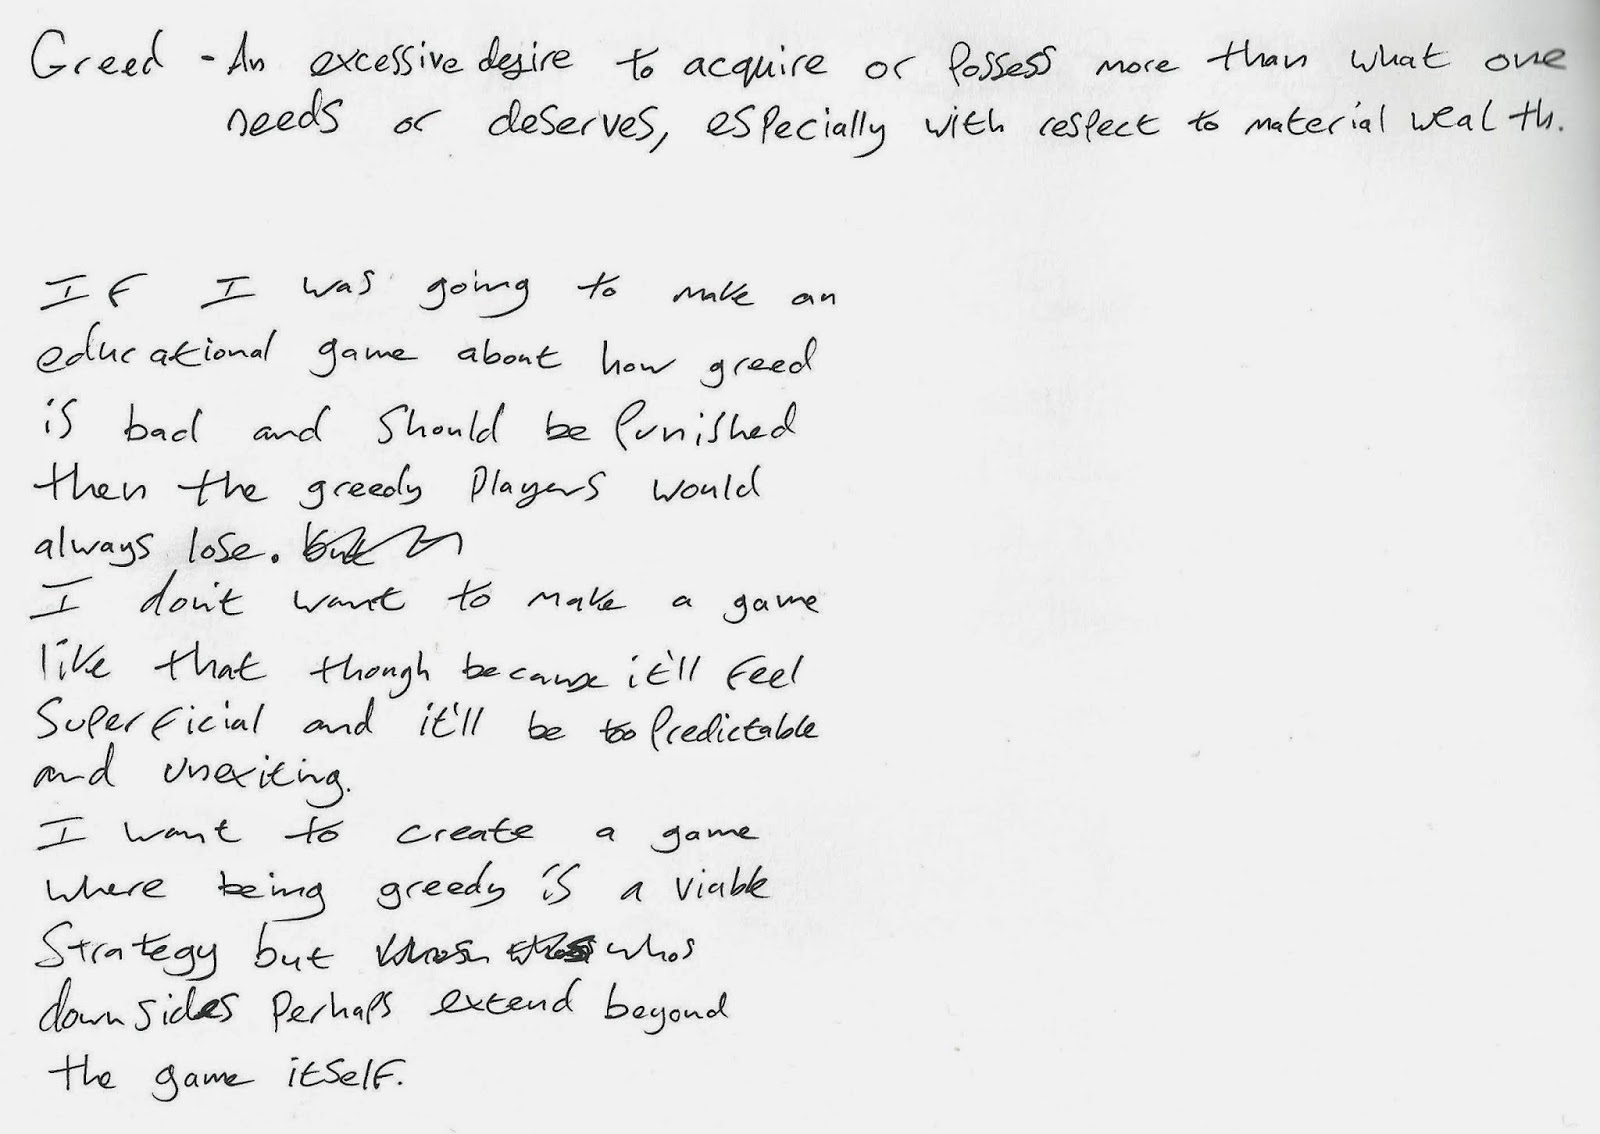 Greed - An excessive desire to acquire or possess more than what one
needs or deserves, especially with respect to material wealth.
If I was going to make an
educational game about how greed
is bad and should be punished
then the greedy players would
always lose. but
I don't want to make a game
like that though because it'll feel
superficial and it'll be to predictable
and unexiting.
I want to create a game
where being greedy is a viable
strategy but whos
downsides perhaps extend beyond
the game itself.